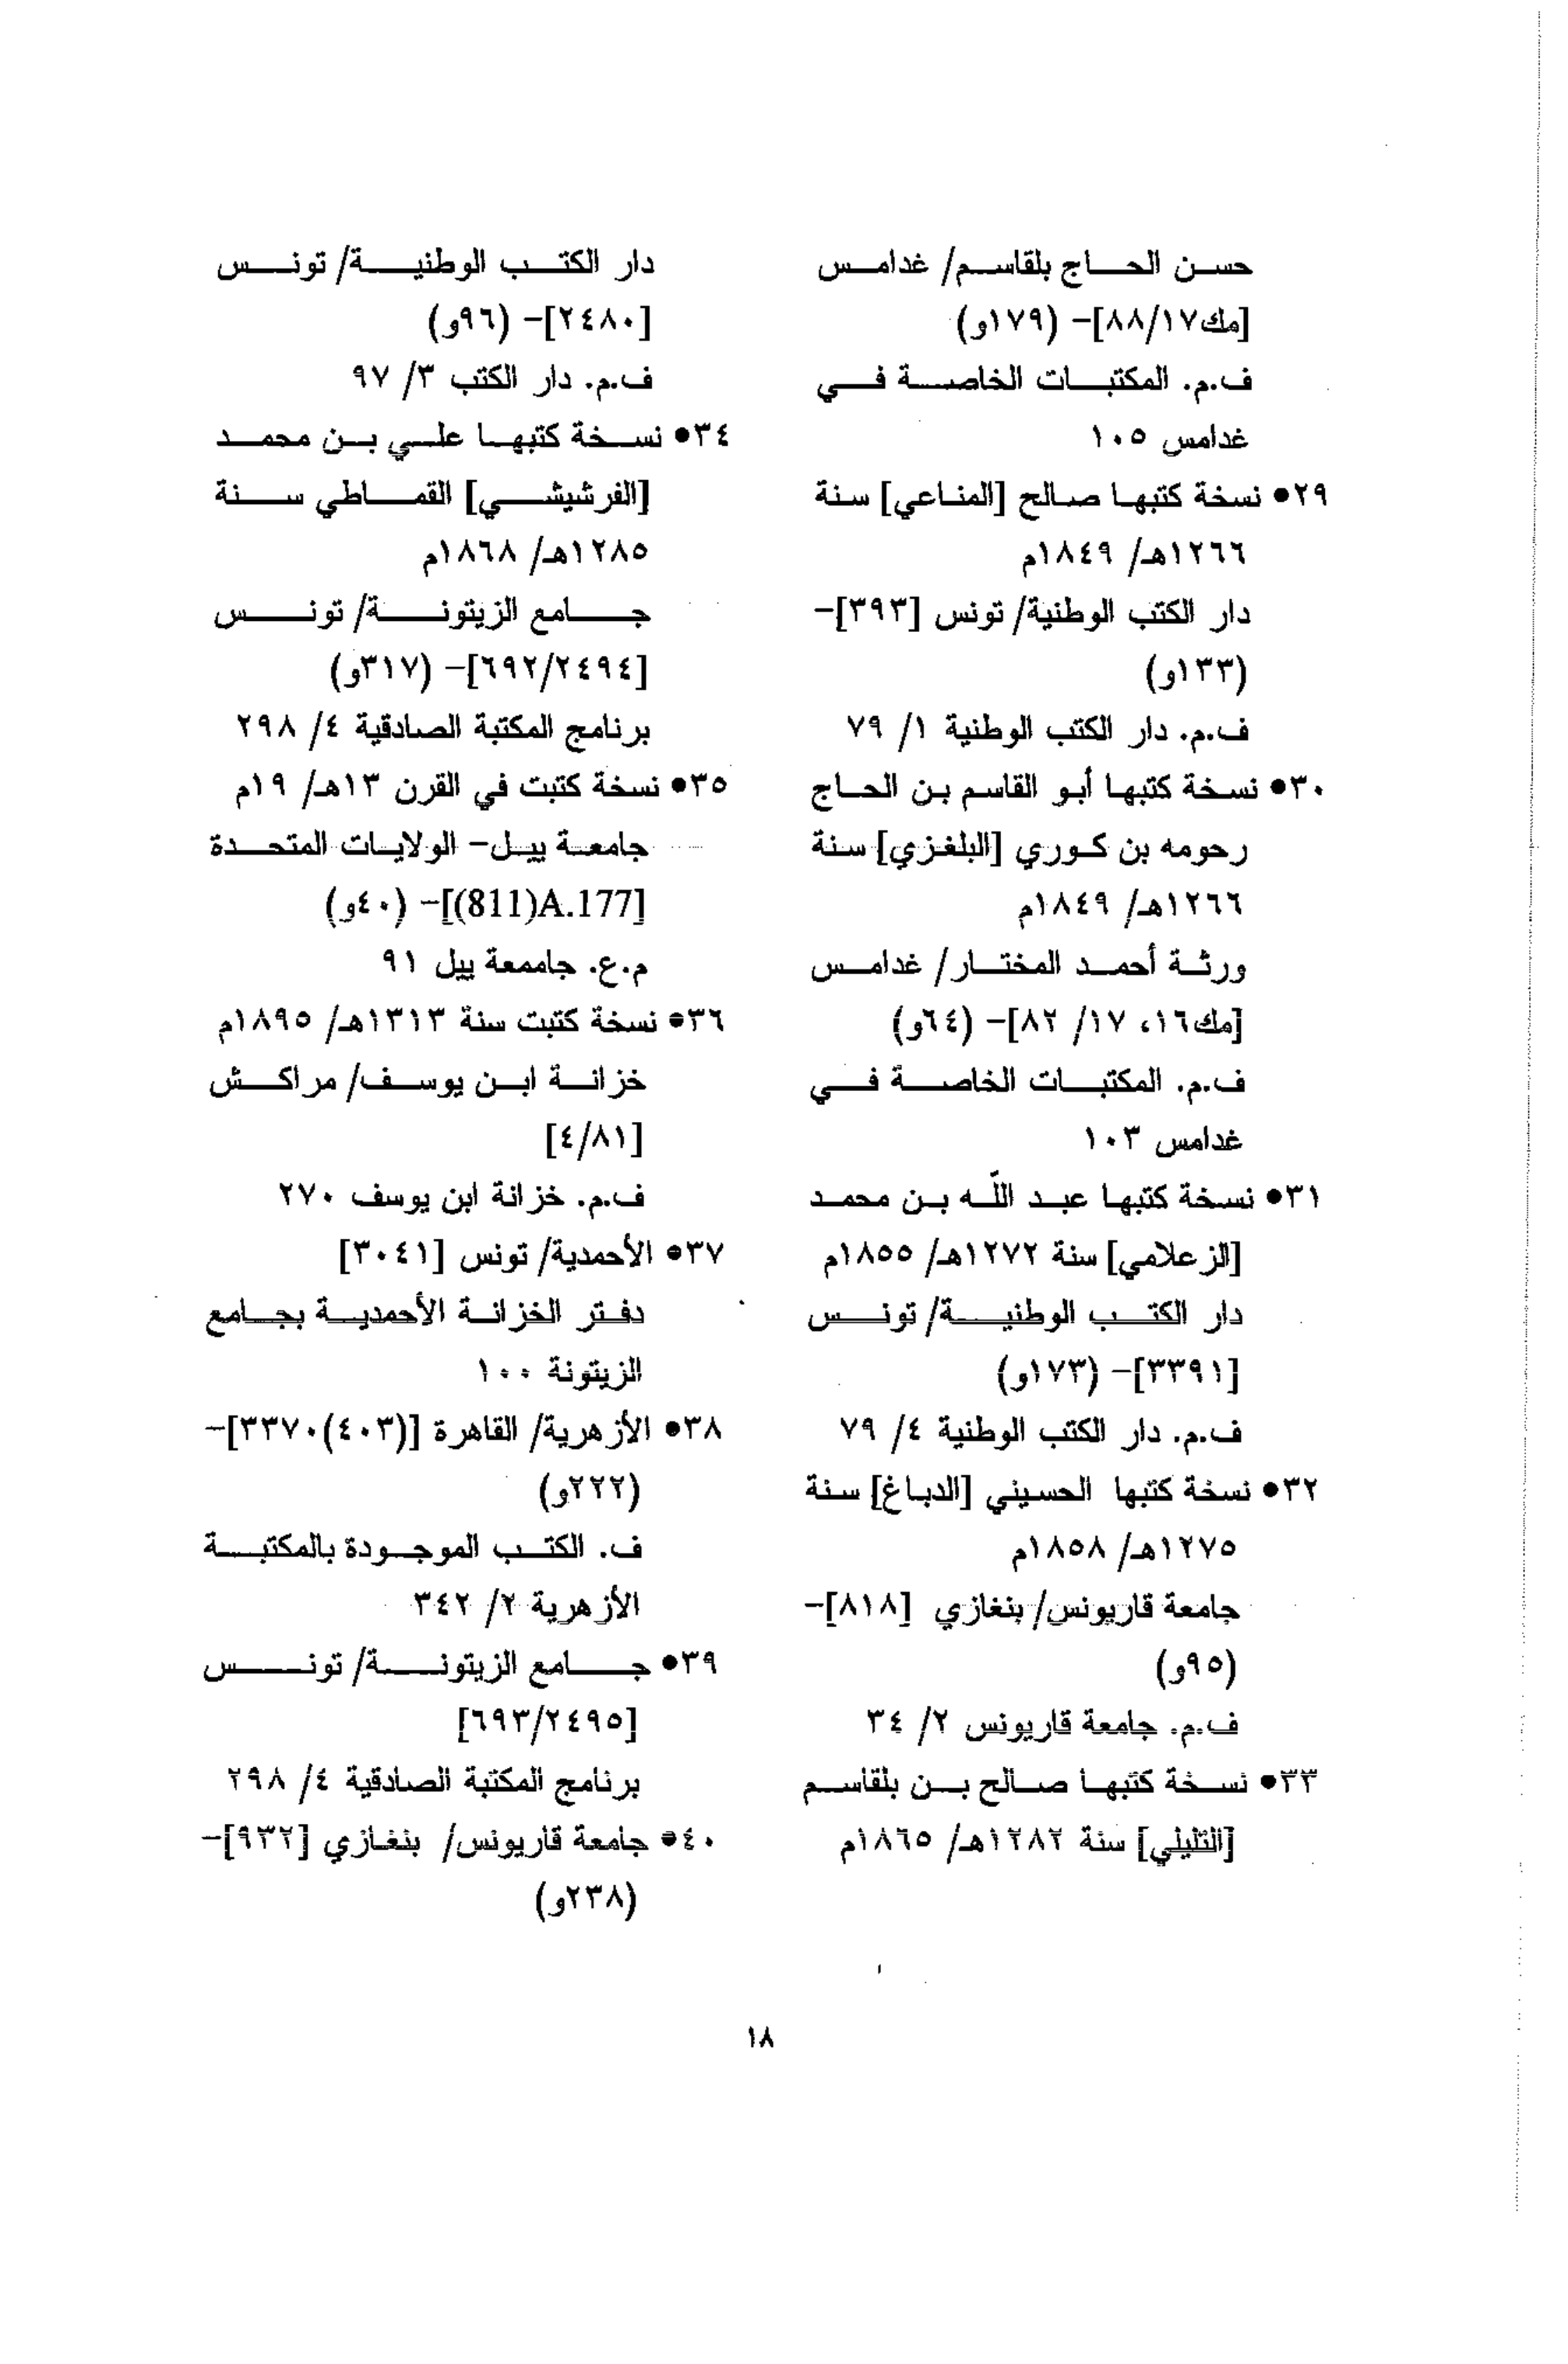 حسن الحاج بلقاسم/ غدامس
[مك٨٨/١٧]- (١٧٩و)
ف.م. المكتبات الخاصة في
غدامس ١٠٥
٢٩• نسخة كتبها صالح [المناعي] سنة
١٢٦٦هـ/ ١٨٤٩م
دار الكتب الوطنية/ تونس [٣٩٣]-
(١٣٣و)
ف.م. دار الكتب الوطنية ١/ ٧٩
٣٠• نسخة كتبها أبو القاسم بن الحاج
رحومه بن كوري [البلغزي] سنة
١٢٦٦هـ/ ١٨٤٩م
ورثة أحمد المختار/ غدامس
[مك١٦، ١٧/ ٨٢]- (٦٤و)
ف.م. المكتبات الخاصة في
غدامس ١٠٣
٣١• نسخة كتبها عبد اللّه بن محمد
[الزعلامي] سنة ١٢٧٢هـ/ ١٨٥٥م
دار الكتب الوطنية/ تونس
[٣٣٩١]- (١٧٣و)
ف.م. دار الكتب الوطنية ٤/ ٧٩
٣٢• نسخة كتبها الحسيني [الدباغ] سنة
١٢٧٥هـ/ ١٨٥٨م
جامعة قاريونس/ بنغازي [٨١٨]-
(٩٥و)
ف.م. جامعة قاريونس ٢/ ٣٤
٣٣• نسخة كتبها صالح بن بلقاسم
[التليلي] سنة ١٢٨٢هـ/ ١٨٦٥م
دار الكتب الوطنية/ تونس
[٢٤٨٠]- (٩٦و)
ف.م. دار الكتب ٣/ ٩٧
٣٤• نسخة كتبها علي بن محمد
[الفرشيشي] القماطي سنة
١٢٨٥هـ/ ١٨٦٨م
جامع الزيتونة/ تونس
[٦٩٢/٢٤٩٤]- (٣١٧و)
برنامج المكتبة الصادقية ٤/ ٢٩٨
٣٥• نسخة كتبت في القرن ١٣هـ/ ١٩م
جامعة ييل- الولايات المتحدة
[(811)A.177]- (٤٠و)
م.ع. جاممعة ييل ٩١
٣٦• نسخة كتبت سنة ١٣١٣هـ/ ١٨٩٥م
خزانة ابن يوسف/ مراكش
[٤/٨١]
ف.م. خزانة ابن يوسف ٢٧٠
٣٧• الأحمدية/ تونس [٣٠٤١]
دفتر الخزانة الأحمدية بجامع
الزيتونة ١٠٠
٣٨• الأزهرية/ القاهرة [(٤٠٣)٣٣٧٠]-
(٢٢٢و)
ف. الكتب الموجودة بالمكتبة
الأزهرية ٢/ ٣٤٢
٣٩• جامع الزيتونة/ تونس
[٦٩٣/٢٤٩٥]
برنامج المكتبة الصادقية ٤/ ٢٩٨
٤٠• جامعة قاريونس/ بنغازي [٩٣٢]-
(٢٣٨و)
١٨